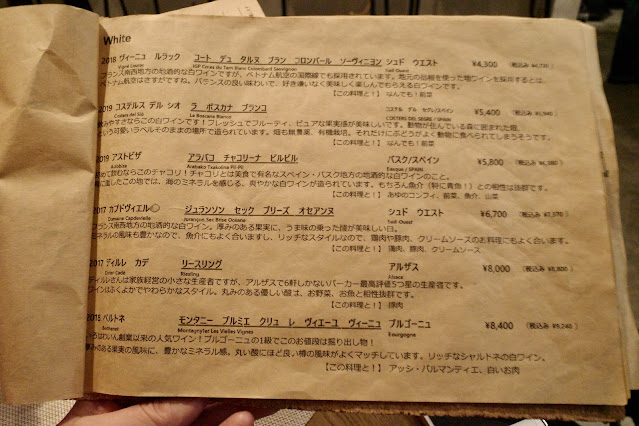 White
2018 ヴィーニュ ルラック コート デュ タルヌ ブラン コロンバール ソーヴィニヨン シュド ウエスト ¥4,300 (税込み ¥4,730)
Vigné Lourac IGP Cotes du Tarn Blanc Colombard Sauvignon Sud Ouest
フランス南西地方の地酒的な白ワインですが、ベトナム航空の国際線でも採用されています。地元の
ベトナム航空はさすがですね。バランスの良い味わいで、好き嫌いなく美味しく楽しんでもらえる白ワインです。
【この料理と！】 なんでも！前菜
2019 コステルス デル シオ ラ ボスカナ ブランコ ¥5,400
Costers del Sió La Boscana Blanco COSTERS DEL SEGRE / SPAIN
飲みやすさならこの白ワインです！フレッシュでフルーティ、ピュアな果実感が美味しいです。動物が住んでいる森に囲まれた畑、
という可愛いラベルそのままの場所で造られています。畑も無農薬、有機栽培。それだけにぶどうがよく動物に食べられてしまうそうです。
【この料理と！】 なんでも！前菜
2019 アストビザ アラバコ チャコリーナ ピルピル バスク/スペイン ¥5,800 (税込み ¥6,380)
Astobiza Arabako Txakolina Pil-Pil Basque / SPAIN
めて飲むならこのチャコリ！チャコリとは美食で有名なスペイン・バスク地方の地酒的な白ワインのこと。
に面したこの地では、海のミネラルを感じる、爽やかな白ワインが造られています。もちろん魚介（特に貝魚！）との相性は抜群です。
【この料理と！】 あゆのコンフィ、前菜、魚介、山菜
2017 カプドヴィエル ジュランソン セック ブリーズ オセアンヌ シュド ウエスト ¥6,700 (税込み ¥7,370)
Domaine Capdevielle Jurançon Sec Brise Océane Sud Ouest
フランス南西地方の地酒的な白ワイン。厚みのある果実に、うま味の乗った酸が美味しい日。
ミネラルの風味も豊かなので、魚介にもよく合いますし、リッチなスタイルなので、鶏肉や豚肉、クリームソースのお料理にもよく合います。
【この料理と！】 鶏肉、豚肉、クリームソース
2017 ディルレ カデ リースリング アルザス ¥8,000 (税込み ¥8,800)
Dirler Cadé Riesling Alsace
ディルレさんは家族経営の小さな生産者ですが、アルザスで6軒しかないパーカー最高評価5つ星の生産者です。
ワインはふくよかでやわらかなスタイル。丸みのある優しい酸は、お野菜、お魚と相性抜群です。
【この料理と！】 豚肉
2015 ベルトネ モンタニー プルミエ クリュ レ ヴィエーユ ヴィーニュ ブルゴーニュ ¥8,400 (税込み ¥9,240)
Bertenet Montagny1er Les Vielles Vignes Bourgogne
いうわいん創業以来の人気ワイン！ブルゴーニュの1級でこのお値段は掘り出し物！
厚みのある果実の風味に、豊かなミネラル感。丸い酸にほど良い樽の風味がよくマッチしています。リッチなシャルドネの白ワイン。
【この料理と！】 アッシ・パルマンティエ、白いお肉